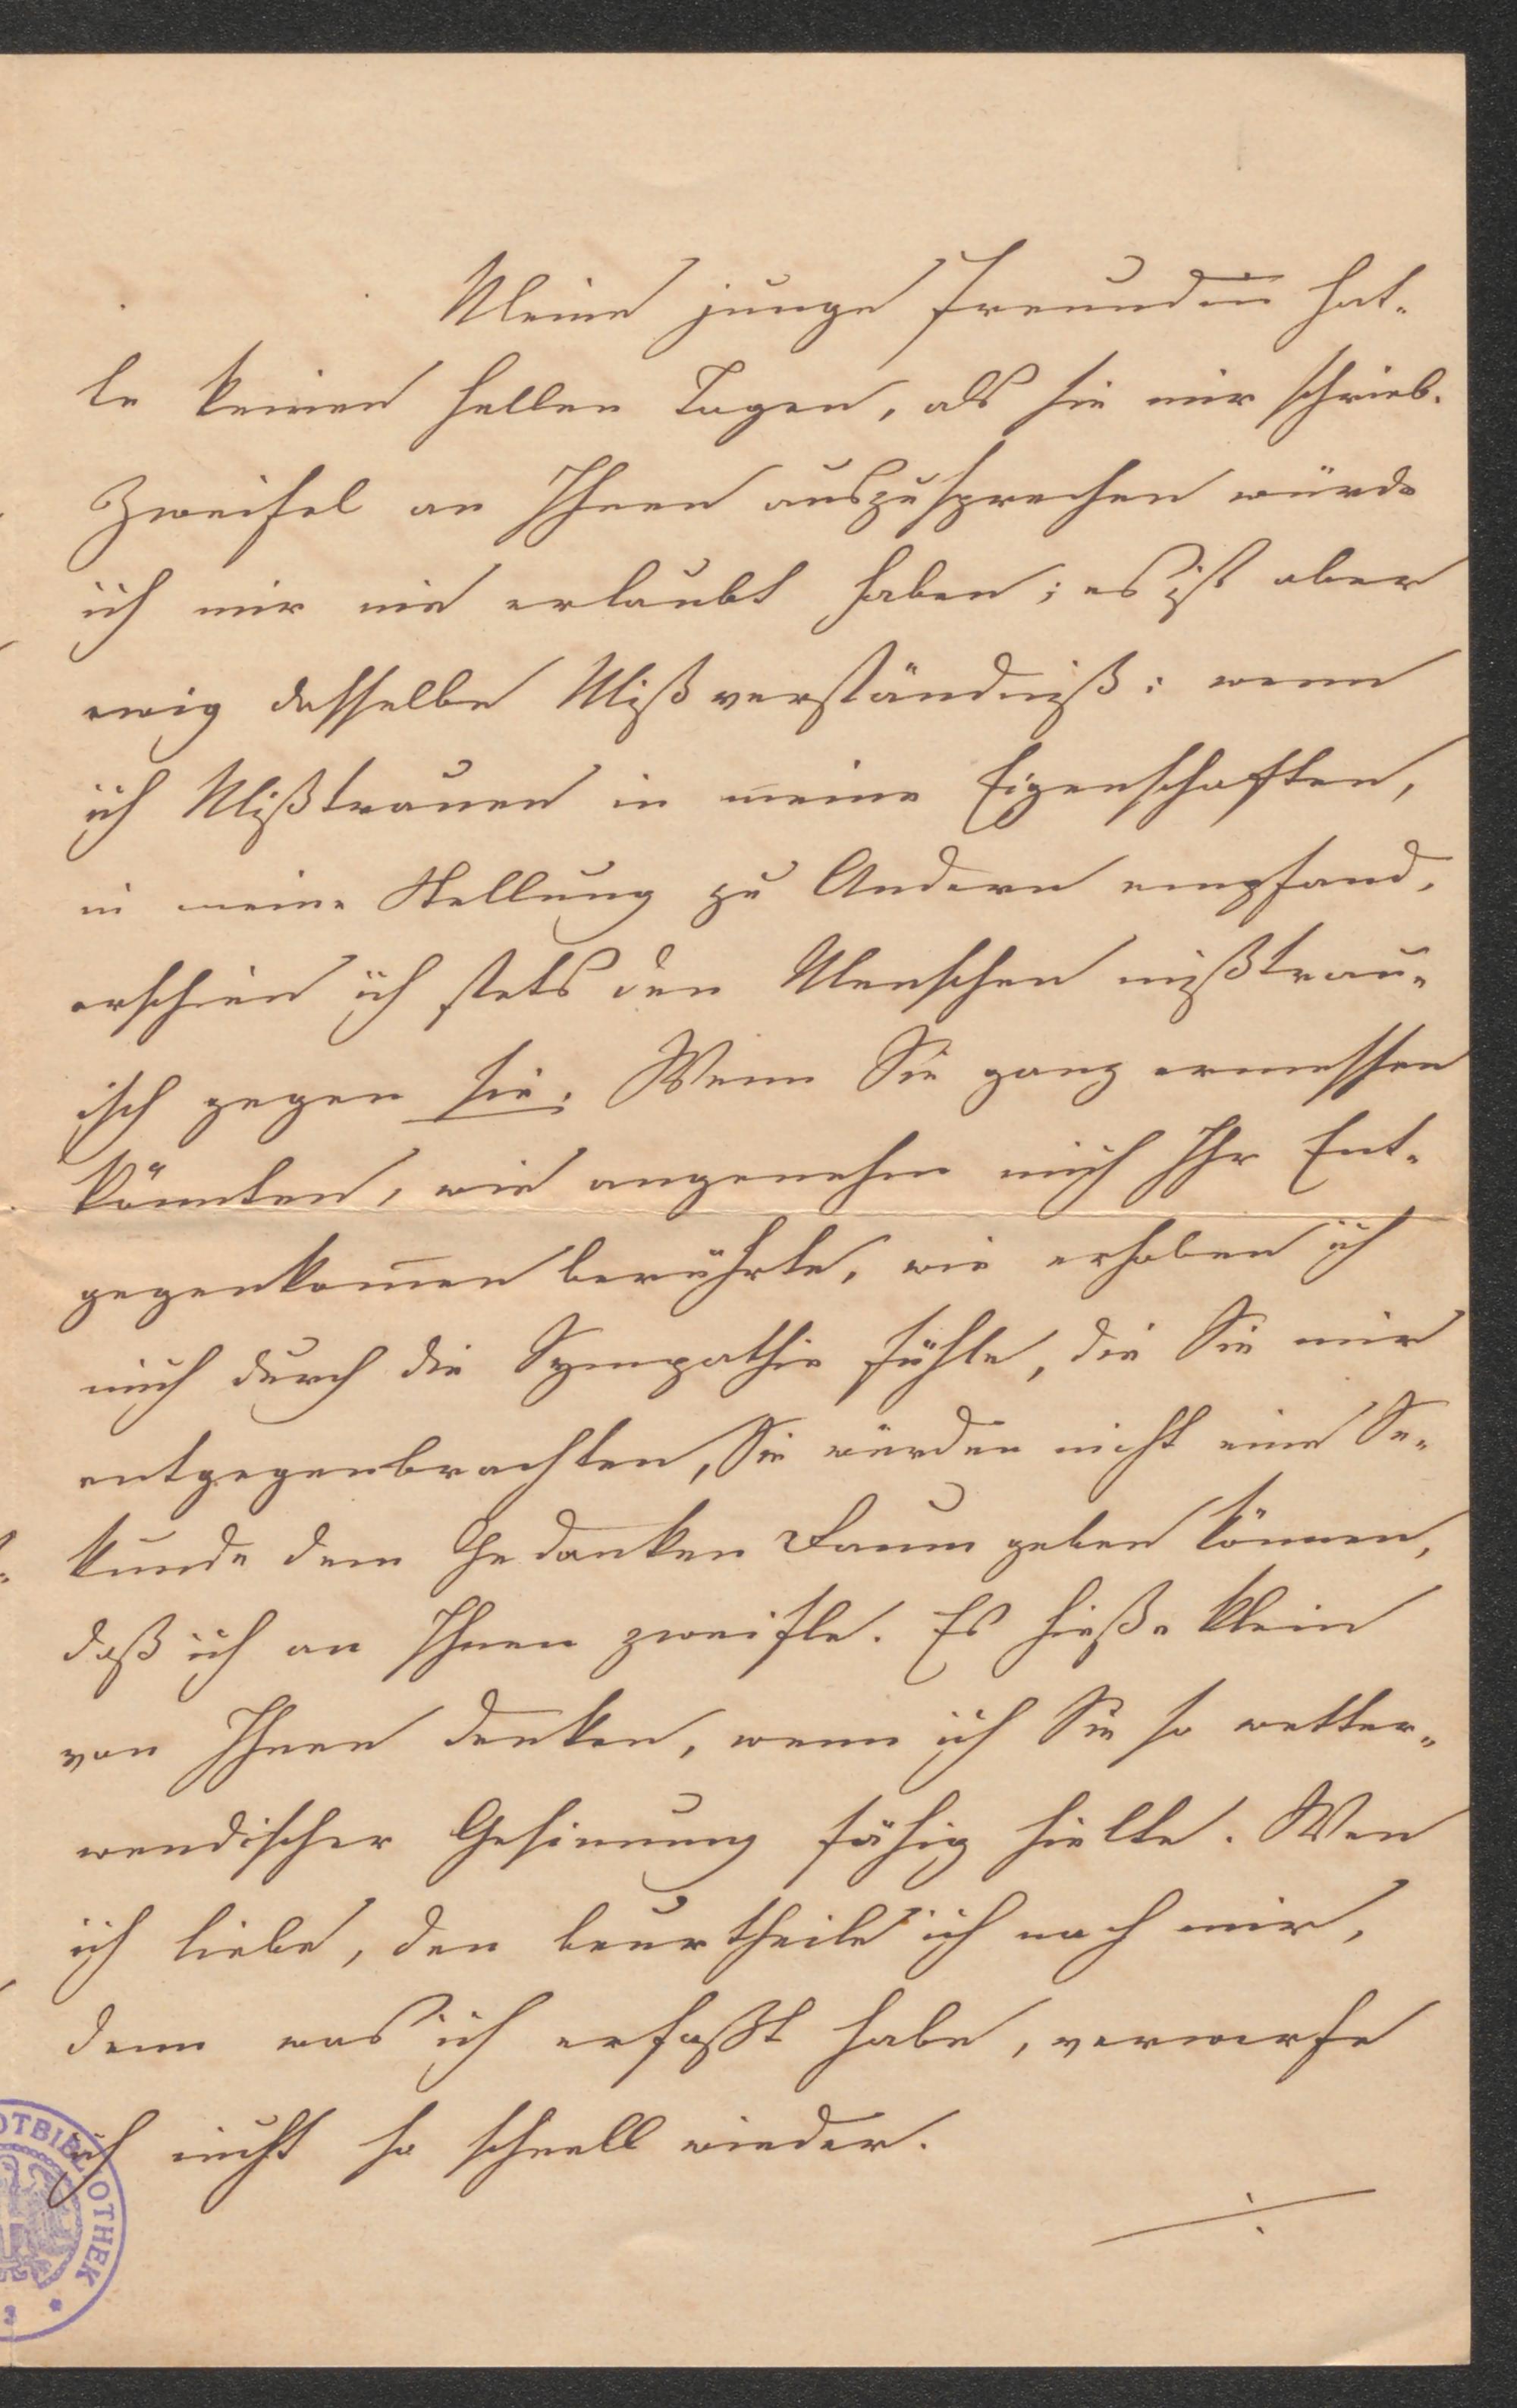 Meine junge Freundin hat-
te keinen hellen Tagen, als sie mir schrieb.
Zweifel an Ihnen auszusprechen würde
ich mir nie erlaubt haben; es ist aber
ewig dasselbe Mißverständniß: wenn
ich Mißtrauen in meine Eigenschaften,
in meine Stellung zu Andern empfand,
erschien ich stets den Menschen mißtrau-
isch gegen sie. Wenn Sie ganz ermessen
könnten, wie angenehm mich Ihr Ent-
gegenkom̅en berührte, wie erhoben ich
mich durch die Sympathie fühle, die Sie mir
entgegenbrachten, Sie würden nicht eine Se-
kunde dem Gedanken Raum geben können,
daß ich an Ihnen zweifle. Es hieße klein
von Ihnen denken, wenn ich Sie so wetter-
wendischer Gesinnung fähig hielte. Wen
ich liebe, den beurtheile ich nach mir,
denn was ich erfaßt habe, verwerfe
ich nicht so schnell wieder.
OTBIBLIOTHEK